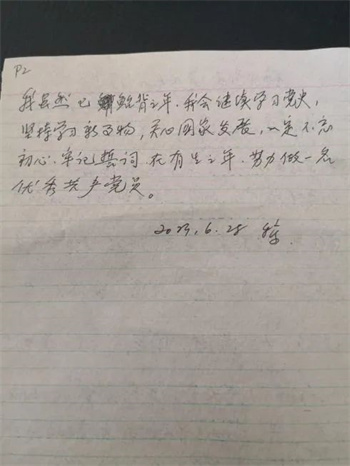 P2
我虽然已鲐背之年，我会继续学习党史，
坚持学习新事物，关心国家发展，一定不忘
初心、牢记誓词，在有生之年，努力做一名
优秀共产党员。
2023.6.28